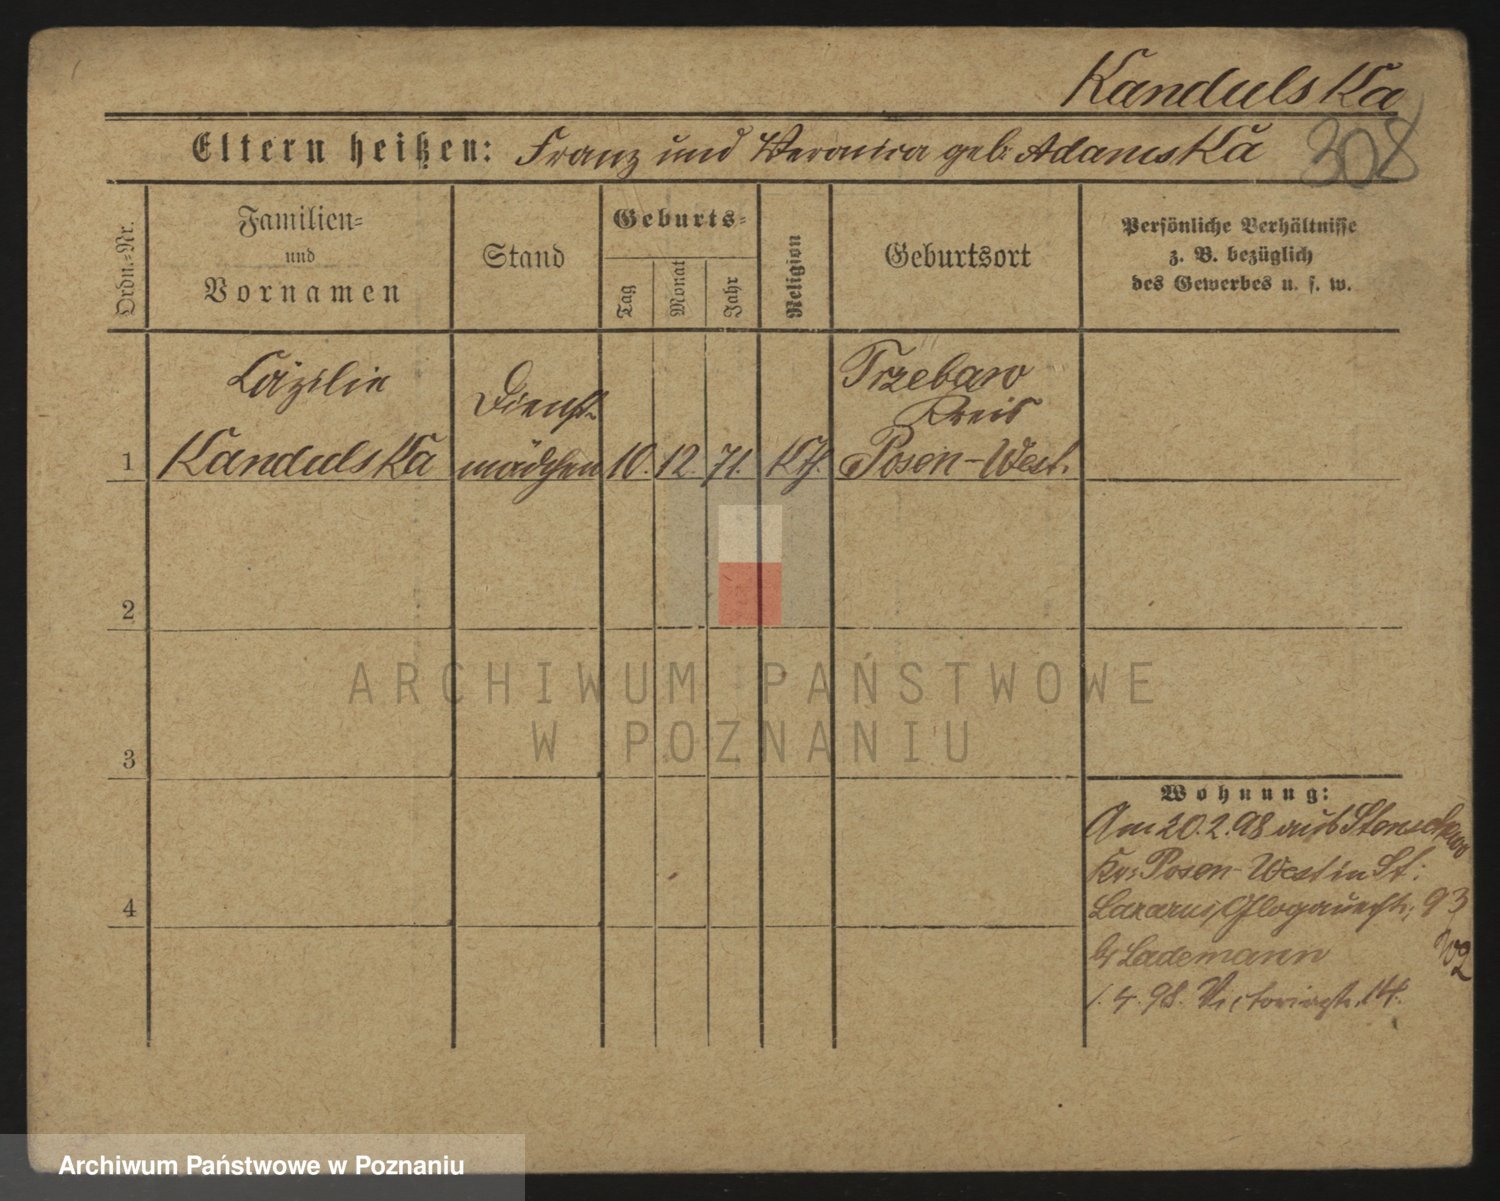 Kandulska
308
Eltern heißen: Franz und Veronica geb: Adamska
Ordn.-Nr.
Familien-
und
Vornamen
Stand
Geburts-
Tag
Monat
Jahr
Religion
Geburtsort
Persönliche Verhältnisse
z. B. bezüglich
des Gewerbes u. s. w.
Cäzilie
Kandulska
Dienst-
mädchen
10. 12. 71.
Kth.
Trzebaw
Kreis
Posen-West.
1
2
3
4
ARCHIWUM PAŃSTWOWE
W POZNANIU
Wohnung:
Am 20.2.98 aus
Kr: Posen-West in St:
Lazarus, Glogauerstr. 93
b/ Lademann
1. 4. 98. Victoriastr. 14.
Archiwum Państwowe w Poznaniu